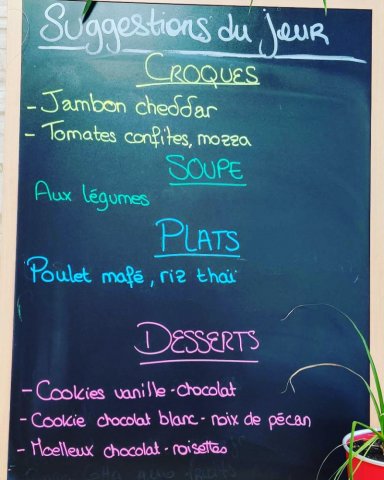 Suggestions du jour
CROQUES
- Jambon cheddar
- Tomates confites, mozza
SOUPE
Aux légumes
PLATS
Poulet mafé, riz thaï
DESSERTS
- Cookies vanille - chocolat
- Cookie chocolat blanc - noix de pécan
- Moelleux chocolat - noisettes